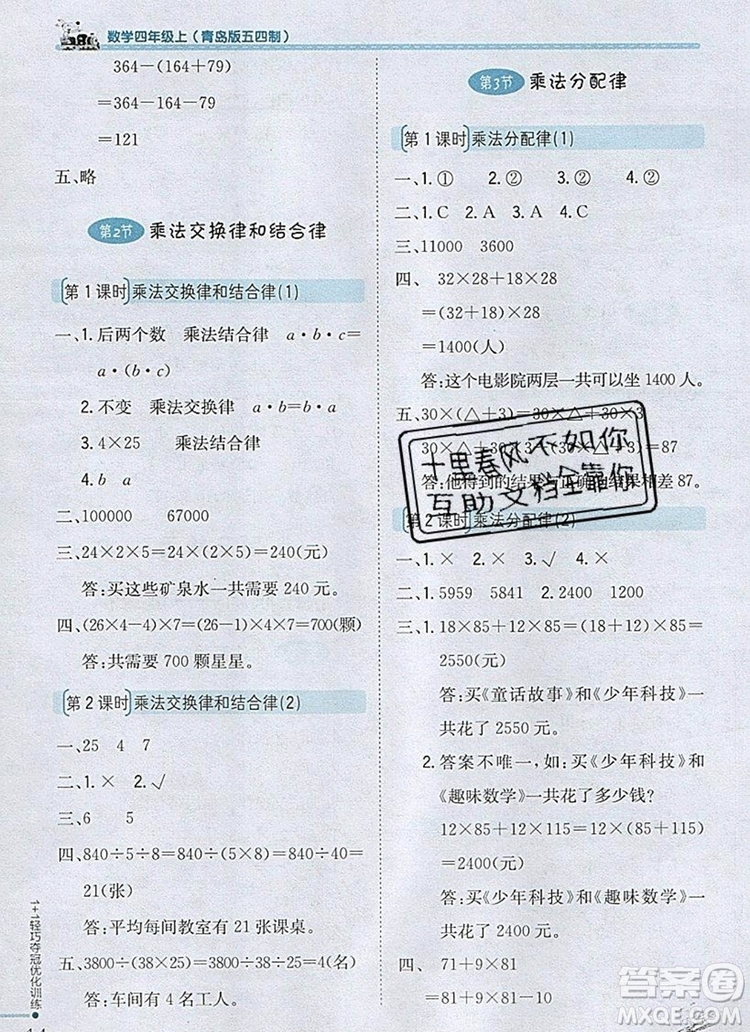 数学四年级上（青岛版五四制）
364－(164＋79)
＝364－164－79
＝121
五、略
第2节 乘法交换律和结合律
第1课时 乘法交换律和结合律(1)
一、1. 后两个数 乘法结合律 a·b·c＝
a·(b·c)
2. 不变 乘法交换律 a·b＝b·a
3. 4×25 乘法结合律
4. b a
二、100000 67000
三、24×2×5＝24×(2×5)＝240(元)
答:买这些矿泉水一共需要 240 元。
四、(26×4－4)×7＝(26－1)×4×7＝700(颗)
答:共需要 700 颗星星。
第2课时 乘法交换律和结合律(2)
一、25 4 7
二、1. × 2. √
三、6 5
四、840÷5÷8＝840÷(5×8)＝840÷40＝
21(张)
答:平均每间教室有 21 张课桌。
五、3800÷(38×25)＝3800÷38÷25＝4(名)
答:车间有 4 名工人。
1+1轻巧夺冠优化训练
第3节 乘法分配律
第1课时 乘法分配律(1)
一、1. ① 2. ② 3. ② 4. ②
二、1. C 2. A 3. A 4. C
三、11000 3600
四、 32×28＋18×28
＝(32＋18)×28
＝1400(人)
答:这个电影院两层一共可以坐 1400 人。
五、30×(△＋3)＝30×△＋30×3
30×△＋30×3－(30×△＋3)＝87
答:他得到的结果与正确结果相差 87。
十里春风不如你
互助文档全靠你
第2课时 乘法分配律(2)
一、1. × 2. × 3. √ 4. ×
二、1. 5959 5841 2. 4200 1200
三、1. 18×85＋12×85＝(18＋12)×85＝
2550(元)
答:买《童话故事》和《少年科技》一
共花了 2550 元。
2. 答案不唯一,如:买《少年科技》和
《趣味数学》一共花了多少钱?
12×85＋12×115＝12×(85＋115)
＝2400(元)
答:买《少年科技》和《趣味数学》一
共花了 2400 元。
四、 71＋9×81
＝(71＋9)×81－10
答案圈
MXQE.COM